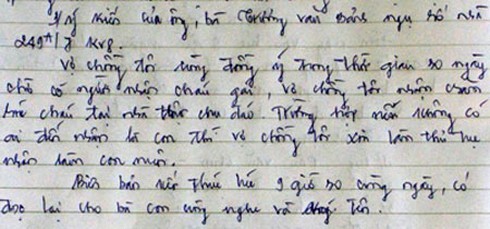 Ý kiến của ông, bà Trương văn Sảng ngụ số nhà
249A/ KV8.
Vợ chồng tôi cũng đồng ý trong thời gian 30 ngày
chờ có người nhận cháu gái, vợ chồng tôi nhận chăm
sóc cháu tại nhà thật chu đáo. Trường hợp nếu không có
ai đến nhận là con thì vợ chồng tôi xin làm thủ tục
nhận làm con nuôi.
Biên bản kết thúc lúc 9 giờ 30 cùng ngày, có
đọc lại cho bà con cùng nghe và ký tên.